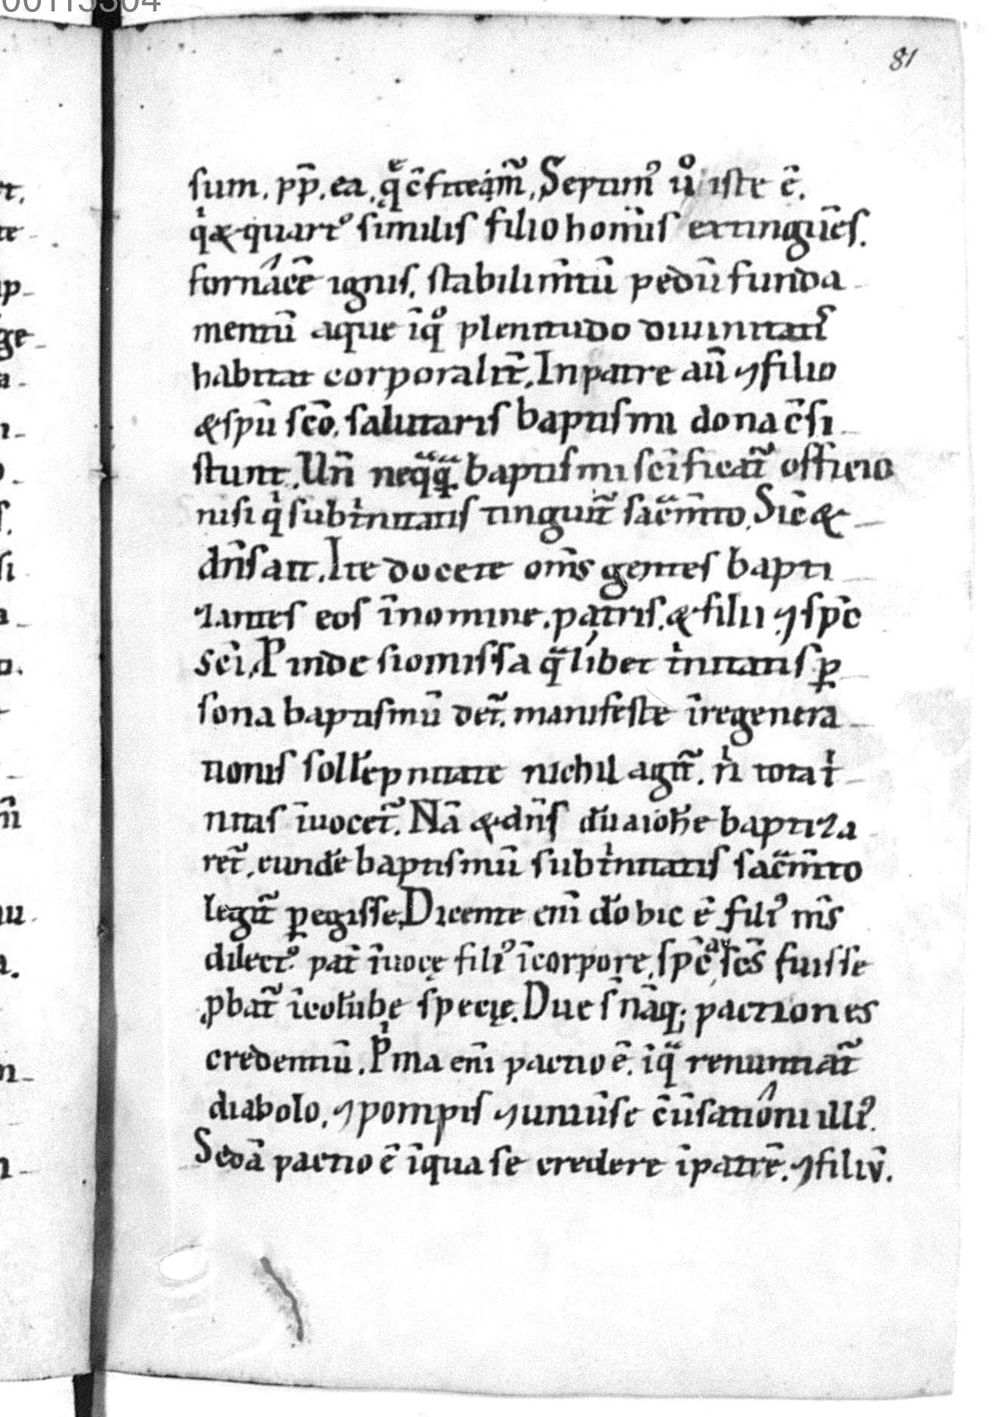 00115304
81
sum. pp̄. ea. q̄ c̄fiteam̃. Septim᷒ uͦ iste ē.
qⁱ & quart᷒ similis filio hom̄is extingūes.
fornacē ignis. stabilim̄tū pedū funda
mentū aque ī qͦ plenitudo diuinitatis
habitat corporalit̄. In patre aū ⁊ filio
& spū scō. salutaris baptismi dona c̄si
stunt. Un̄ neqͣqͣ baptismi scīficat̃ officio
nisi qⁱ sub tⁱnitatis tinguit̃ sac̃m̄to. Sic̄ &
dn̄s ait. Ite docete om̄s gentes bapti
zantes eos ī nomine. patris. & filii ⁊ spc̄
scī. Pinde si omissa qͣlibet tⁱnitatis ꝑ
sona baptismū det̃. manifeste ī regenera
tionis sollēpnitate nichil agit̃. nⁱ tota tⁱ
nitas īuocet̃. Nā & dn̄s dū a ioħe baptiza
ret̃. eundē baptismū sub tⁱnitatis sac̃m̄to
legit̃ ꝑegisse. Dicente eni d̄o hic ē fili᷒ m̄s
dilect᷒. pat̄ ī uoce fili᷒ ī corpore. spc̄ scs̄ fuisse
ꝓbat̃ ī colūbe specie. Due sⁿ nāq; pactiones
credentiū. Pⁱma eni pactio ē. ī qͣ renuntiat̃
diabolo. ⁊ pompis ⁊ uniūse c̄ūsationi illi᷒.
Scdā pactio ē ī qua se credere ī patrē. ⁊ filiū.